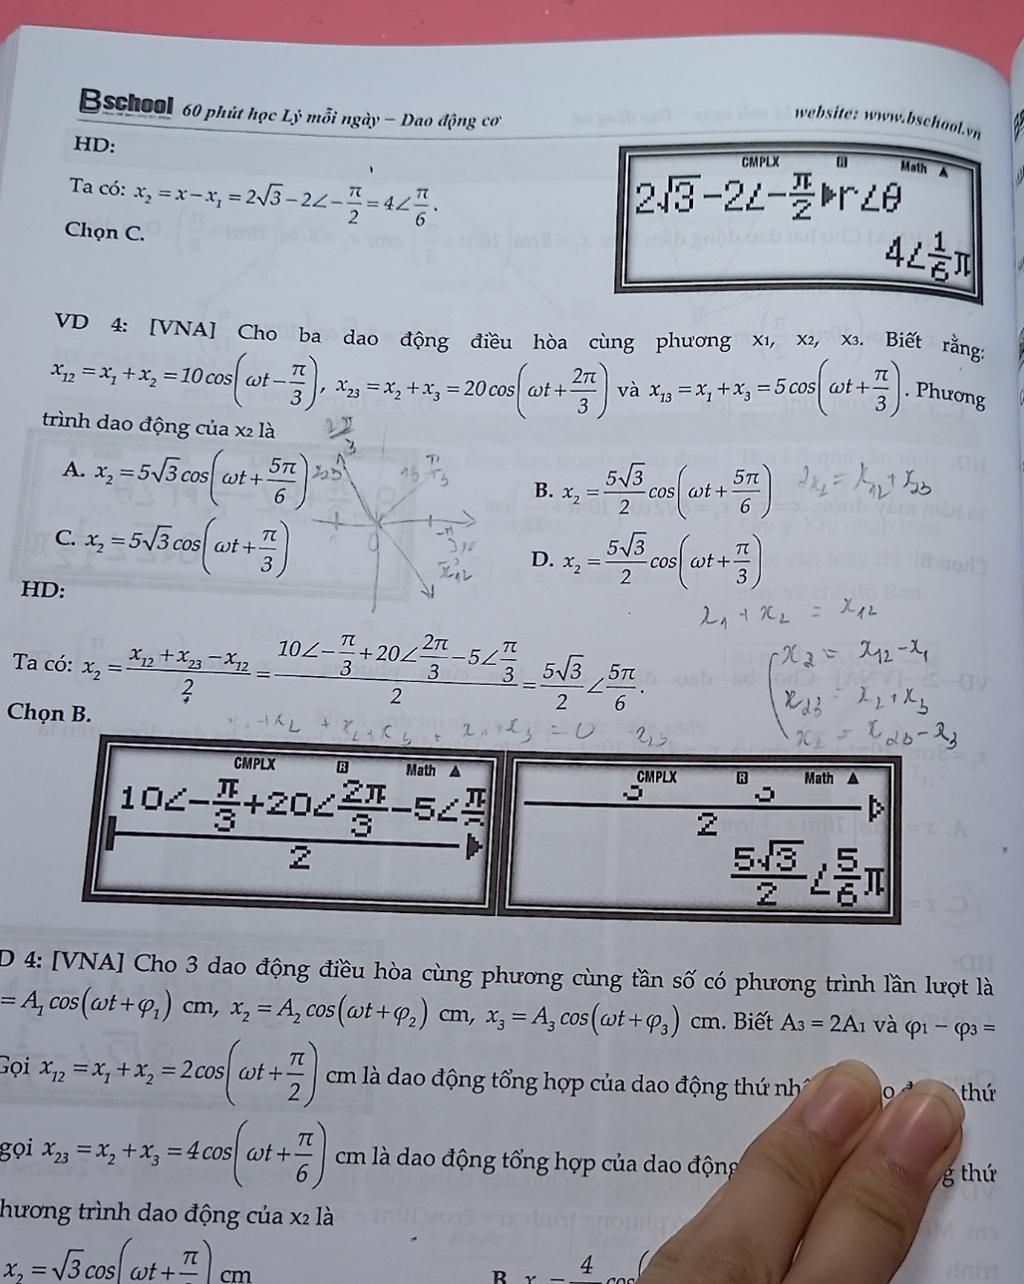 Bschool 60 phút học Lý mỗi ngày – Dao động cơ
website: www.bschool.vn
HD:
Ta có: x₂ = x − x₁ = 2√3 − 2∠−π/2 = 4∠π/6.
Chọn C.
CMPLX R Math ▲
2√3−2∠−π/2▶r∠θ
4∠1/6π
VD 4: [VNA] Cho ba dao động điều hòa cùng phương x₁, x₂, x₃. Biết rằng:
x₁₂ = x₁ + x₂ = 10cos(ωt − π/3), x₂₃ = x₂ + x₃ = 20cos(ωt + 2π/3) và x₁₃ = x₁ + x₃ = 5cos(ωt + π/3). Phương
trình dao động của x₂ là
A. x₂ = 5√3cos(ωt + 5π/6)
B. x₂ = 5√3/2 cos(ωt + 5π/6)
2x₂ = x₁₂ + x₂₃
C. x₂ = 5√3cos(ωt + π/3)
D. x₂ = 5√3/2 cos(ωt + π/3)
x₁₂
HD:
x₁ + x₂ = x₁₂
Ta có: x₂ = (x₁₂ + x₂₃ − x₁₂)/2 = (10∠−π/3 + 20∠2π/3 − 5∠π/3)/2 = 5√3/2 ∠5π/6.
x₂ = x₁₂ − x₁
x₂₃ = x₂ + x₃
x₂ = x₂₃ − x₃
Chọn B.
+ x₂ + x₂ + x₃ + x₁ + x₃ = 0 x₂₃
CMPLX R Math ▲
10∠−π/3+20∠2π/3−5∠π
2
CMPLX R Math ▲
2
5√3/2∠5/6π
D 4: [VNA] Cho 3 dao động điều hòa cùng phương cùng tần số có phương trình lần lượt là
= A₁cos(ωt + φ₁) cm, x₂ = A₂cos(ωt + φ₂) cm, x₃ = A₃cos(ωt + φ₃) cm. Biết A₃ = 2A₁ và φ₁ − φ₃ =
Gọi x₁₂ = x₁ + x₂ = 2cos(ωt + π/2) cm là dao động tổng hợp của dao động thứ thứ
gọi x₂₃ = x₂ + x₃ = 4cos(ωt + π/6) cm là dao động tổng hợp của dao động thứ
hương trình dao động của x₂ là
x₂ = √3cos(ωt + π cm
B 4